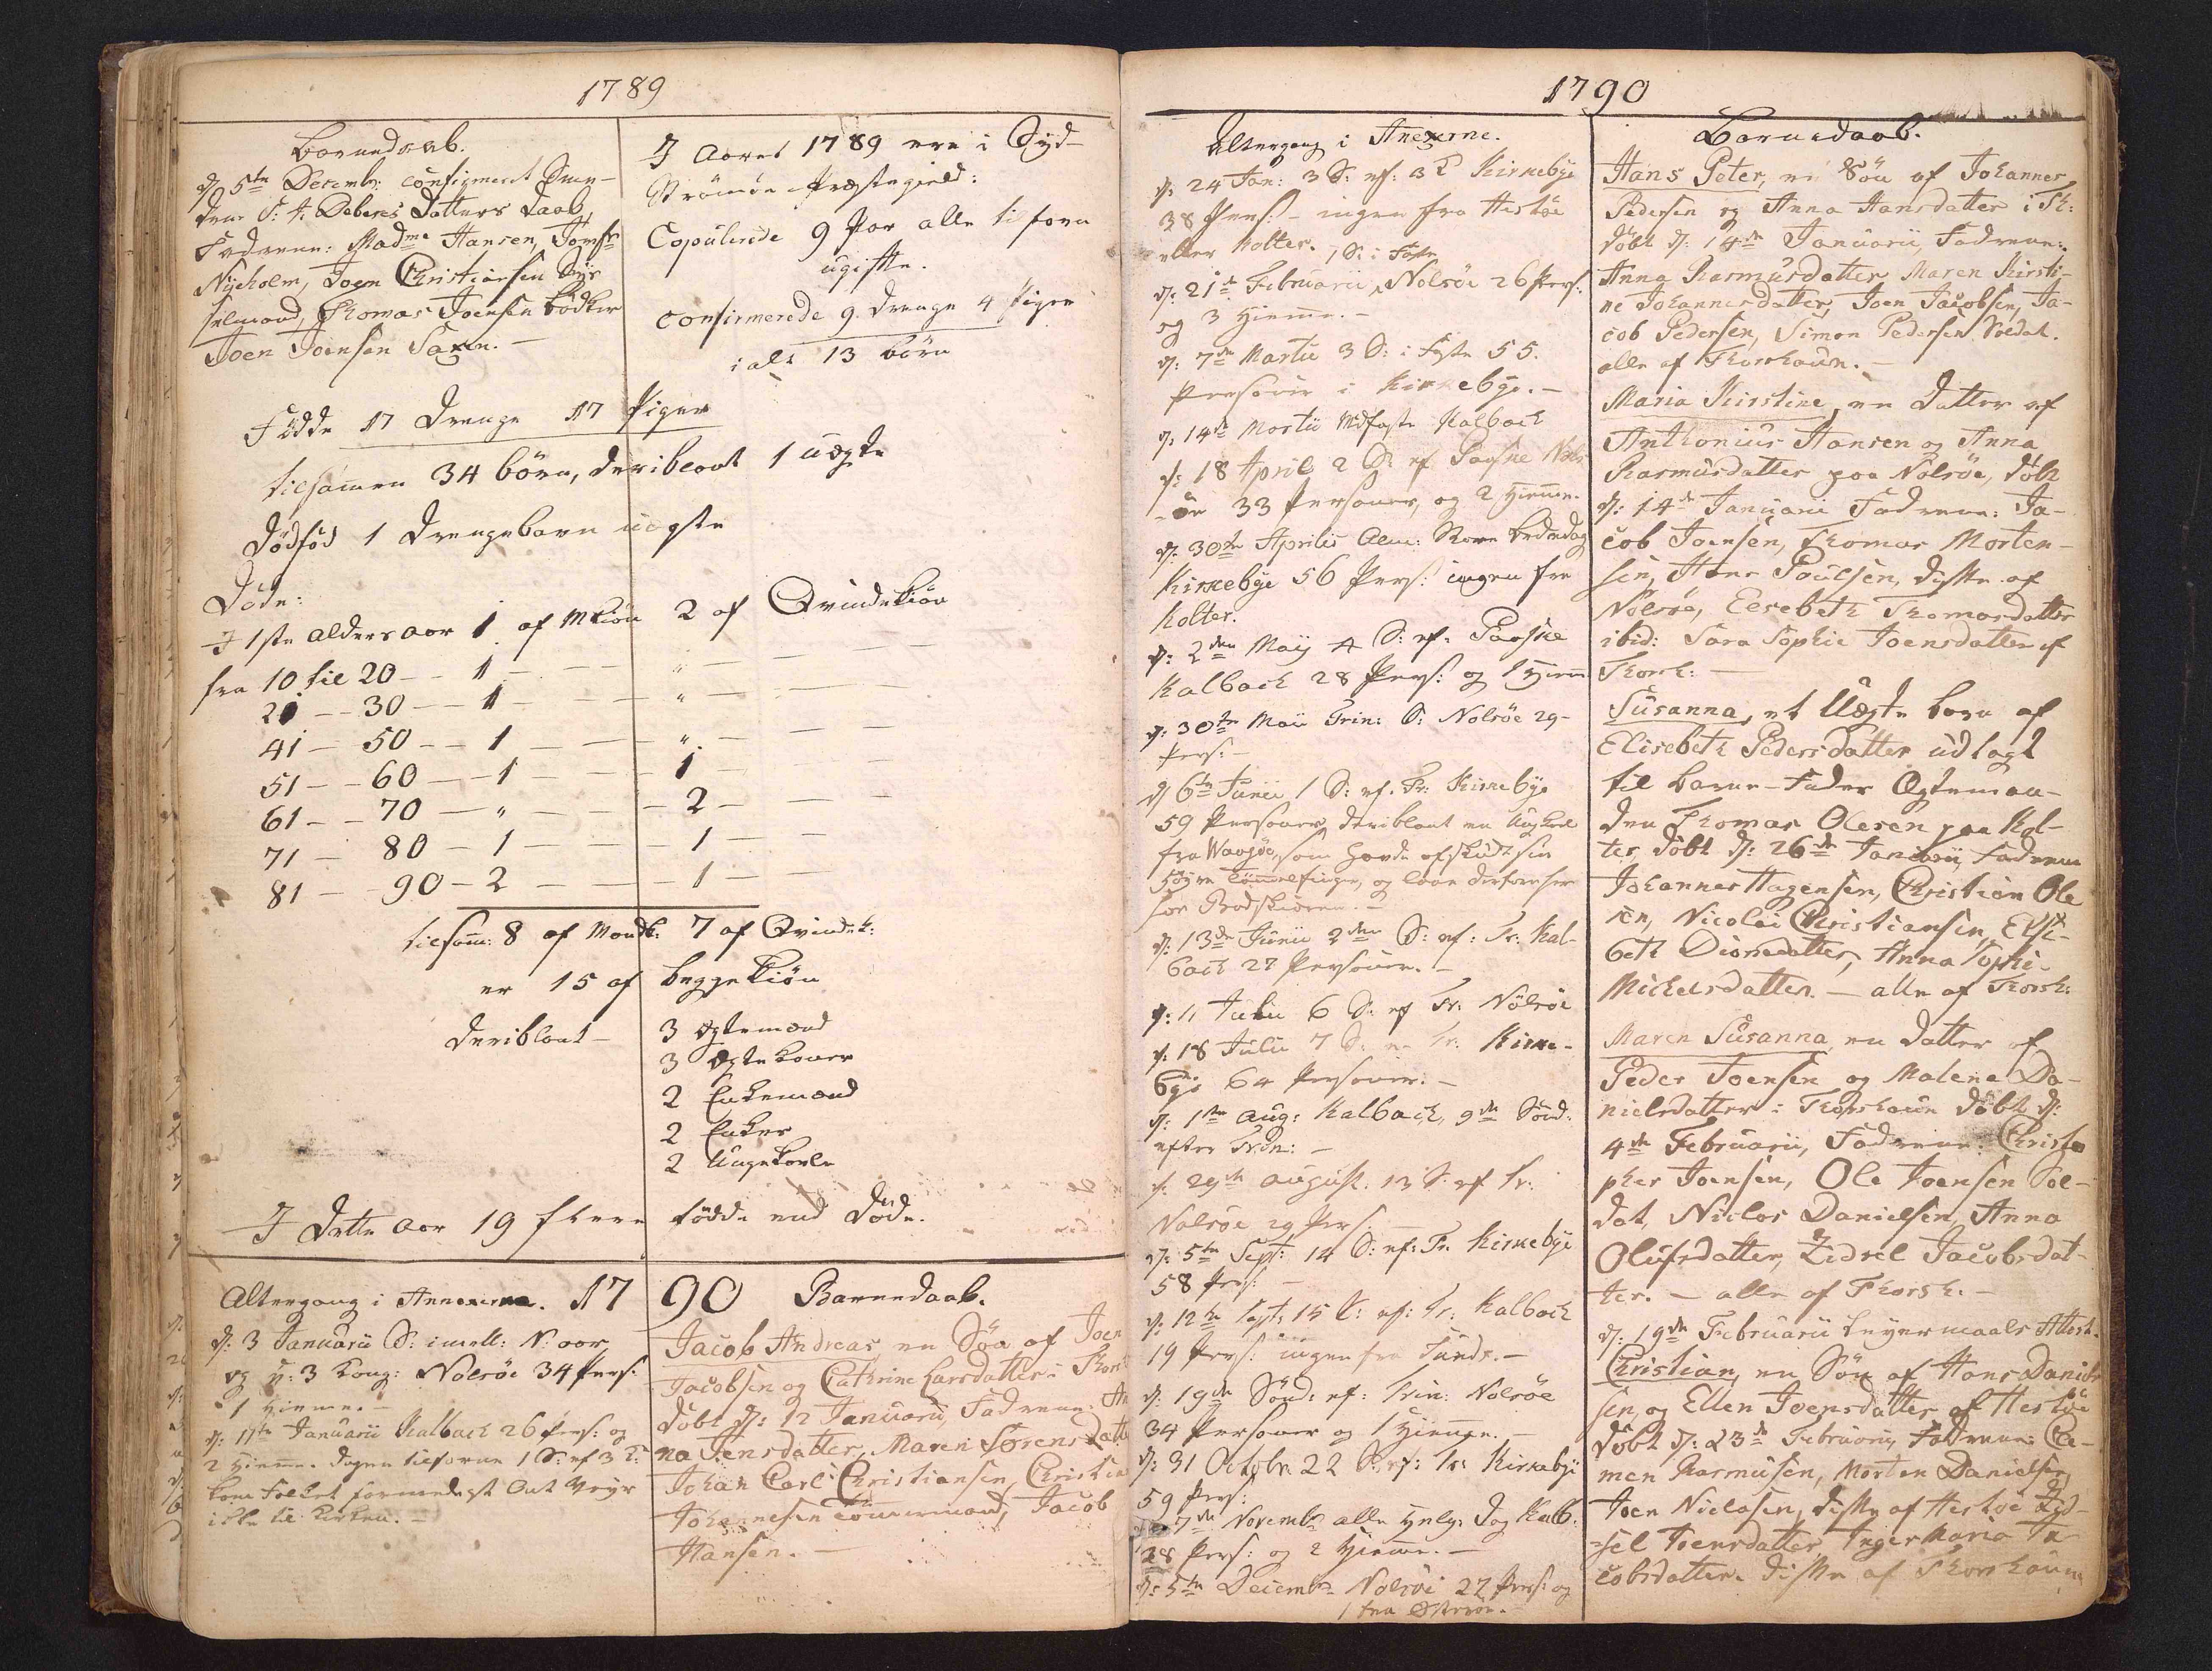 1789
Barnedaab.
d. 5te Decembr: confirmeret Præ-
Fadderne: Madme Hansen, Jomfr
Nyeholm, Joen Christiansen
Thomas Joensen Bødker
Joen Joensen Saxen. —
I Aaret 1789 ere i Syd-
Strömöe Præstegield:
Copulerede 9 Par alle tilforn
ugifte.
Confirmerede 9 Drenge 4 Piger
i alt 13 börn
Födde 17 Drenge 17 Piger
tilsamen 34 börn, deriblant 1 uægte
Dödfød 1 Drengebarn uægte
Döde:
I 1ste Alders aar 1 af Mkiön 2 af Qvindekiön
fra 10 til 20 — 1 — "
21 — 30 — 1 — "
41 — 50 — 1 — "
51 — 60 — 1 — 1
61 — 70 — " — 2
71 — 80 — 1 — 1
81 — 90 — 2 — 1
tilsam: 8 af Mandk: 7 af Qvindek:
er 15 af begge Kiön
deriblant — 3 Ægtemænd
3 Ægtekoner
2 Enkemænd
2 Enker
2 Ungekarle
I dette Aar 19 flere födde end döde.
Altergang i Annexerne. 1790 Barnedaab.
d: 3 Januarii S: imell: N: aar
og H: 3 Kong: Nolsöe 34 Pers:
1 Hiemme. —
d: 17te Januarii Kalbach 26 Pers: og
2 Hiemme. Dagen tilforne 1 S: ef 3 K:
kom Folket formedelst Ont Veyr
ikke til Kirken. —
Jacob Andreas, en Sön af Joen
Jacobsen og Cathrine Larsdatter i Thorsh
döbt d: 12 Januarii, Fadderne: An
na Jensdatter, Maren Sörensdatt
Johan Carl Christiansen, Christen
Johannesen Tömermand, Jacob
Hansen. —
1790
Altergang i Anexerne.
d: 24 Jan: 3 S: ef: 3 K Kirkebye
38 Pers: — ingen fra Hestöe
eller Kolter. 1 S: i Faste
d: 21de Februarii, Nolsöe 26 Pers:
og 3 Hiemme. —
d: 7de Martii 3 S: i Faste 55.
Personer i Kirkebye. —
d: 14de Martii Midfaste Kalbach
d: 18 April 2 S: ef Paaske Nols-
öe 33 Personer, og 2 Hiemme.
d: 30te Aprilis Alm: Store Bededag
Kirkebye 56 Pers: ingen fra
Kolter.
d: 2den Maij 4 S: ef: Paaske
Kalbach 28 Pers: og 1 Hiem
d: 30te Maii Trin: S: Nolsöe 29-
Pers: —
d 6te Junii 1 S: ef. Tr: Kirkebye
59 Personer, deriblant en Ungkarl
fra Waagöe, som havde afskudt sin
höyre Tommelfinger, og laae
for Bredskiæren. —
d: 13de Junii 2den S: ef: Tr: Kal-
bach 27 Personer. —
d: 11 Julii 6 S: ef Tr: Nölsöe
d: 18 Julii 7 S: ef Tr: Kirke-
bye 64 Personer. —
d: 1te Aug: Kalbach, 9de Sönd:
efter Trin: —
d. 29de August. 13 S: ef Tr:
Nolsöe 29 Pers:
d: 5te Sept: 14 S: ef: Tr. Kirkebye
58 Pers: —
d: 12te Sept: 15 S: ef: Tr: Kalbach
19 Pers: ingen fra Sund. —
d: 19de Sönd: ef: Trin: Nolsöe
34 Personer og 1 Hiemme. —
d: 31 Octobr. 22 S: ef: Tr: Kirkebye
59 Pers:
d: 7de Novembr alle Helg: Dag Kalb:
28 Pers: og 2 Hiemme. —
d: 5te Decembr Nolsöe 27 Pers: og
1 fra Österöe. —
Barnedaab.
Hans Peter, en Sön af Johannes
Pedersen og Anna Hansdatter i Th:
döbt d: 14de Januarii, Fadderne:
Anna Rasmusdatter, Maren Kirsti-
ne Johannesdatter, Joen Jacobsen, Ja-
cob Pedersen, Simon Pedersen Soldat.
alle af Thorshavn. —
Maria Kirstine, en Datter af
Anthonius Hansen og Anna
Rasmusdatter paa Nolsöe, döbt
d: 14de Januarii Fadderne: Ja-
cob Joensen, Thomas Morten-
sen, Hans Poulsen, disse af
Nolsöe, Elsebeth Thomasdatter
ibid: Sara Sophie Joensdatter af
Thorsh: —
Susanna, et Uægte barn af
Elisebeth Pedersdatter udlagt
til barne-Fader Ægteman-
den Thomas Olesen paa Kol-
ter, döbt d: 26de Januarii, Fadderne
Johannes Hagensen, Christian Ole
sen, Nicolai Christiansen, Else-
beth Diones datter, Anna Sophi-
Michelsdatter. — alle af Thorsh:
Maren Susanna, en Datter af
Peder Joensen og Malene Da-
nielsdatter i Thorshavn döbt d:
4de Februarii, Fadderne: Christo
pher Joensen, Ole Joensen Sol-
dat, Niclas Danielsen, Anna
Olufsdatter, Zidsel Jacobsdat-
ter. — alle af Thorsh. —
d: 19de Februarii Leyermaals Attest.
Christian, en Sön af Hans Daniel
sen og Ellen Joensdatter af Hestöe
döbt d: 23de Februarii, Fadderne: Cle-
men Rasmusen, Morten Danielsen
Joen Niclasen, disse af Hestöe Zid-
sel Joensdatter, Inger Maria Ja-
cobsdatter. disse af Thorshavn